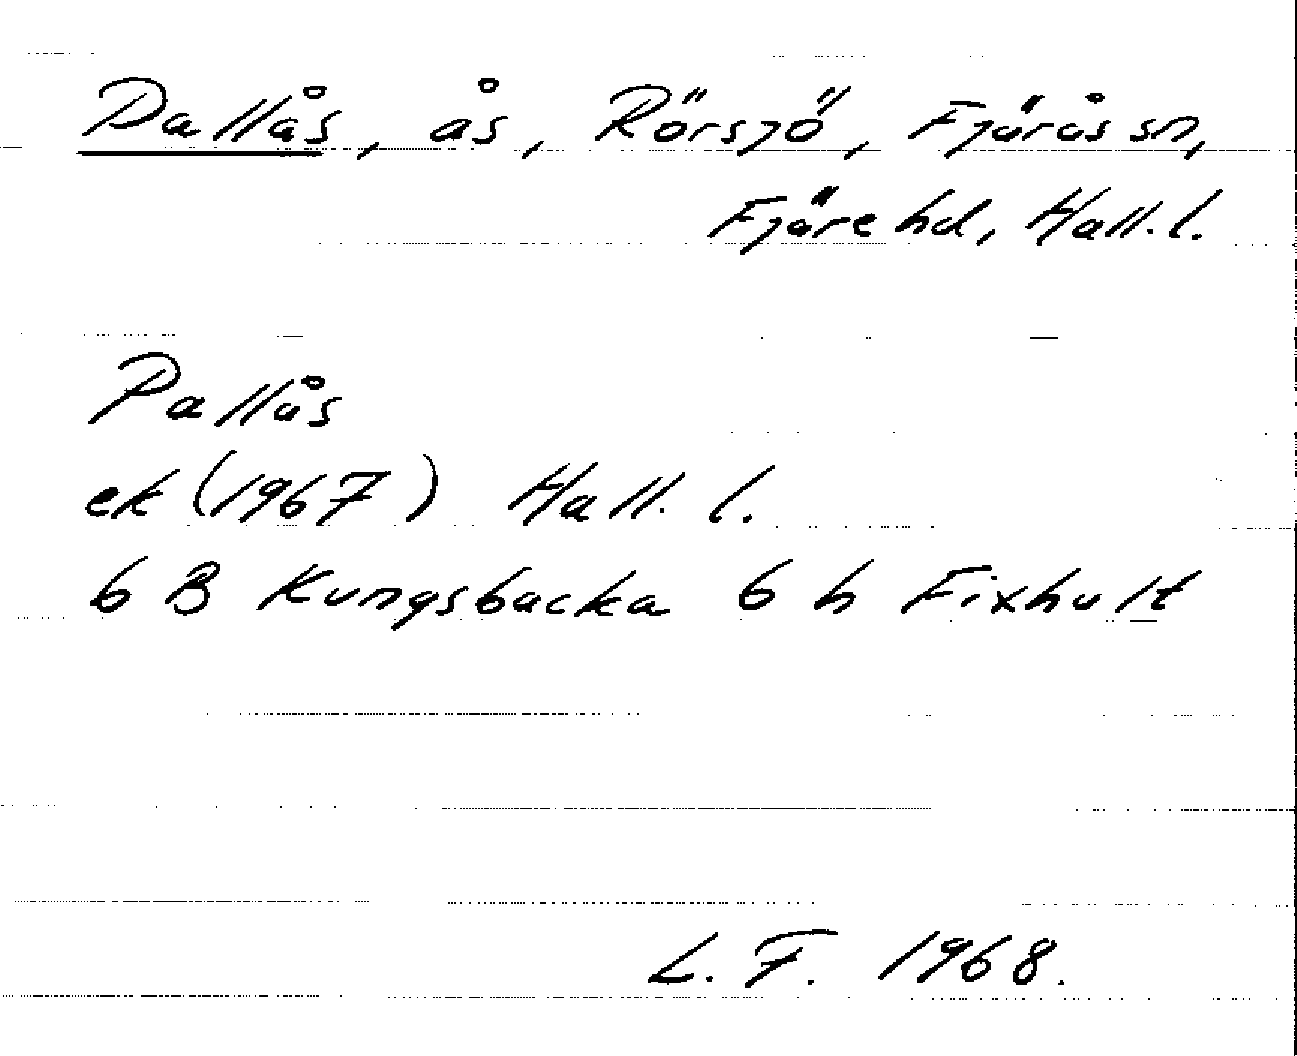 Pallås, ås, Rörsjö, Fjärås sn,
Fjäre hd, Hall. l.
Pallås
ek (1967) Hall. l.
6 B Kungsbacka 6 h Fixhult
L. F. 1968.